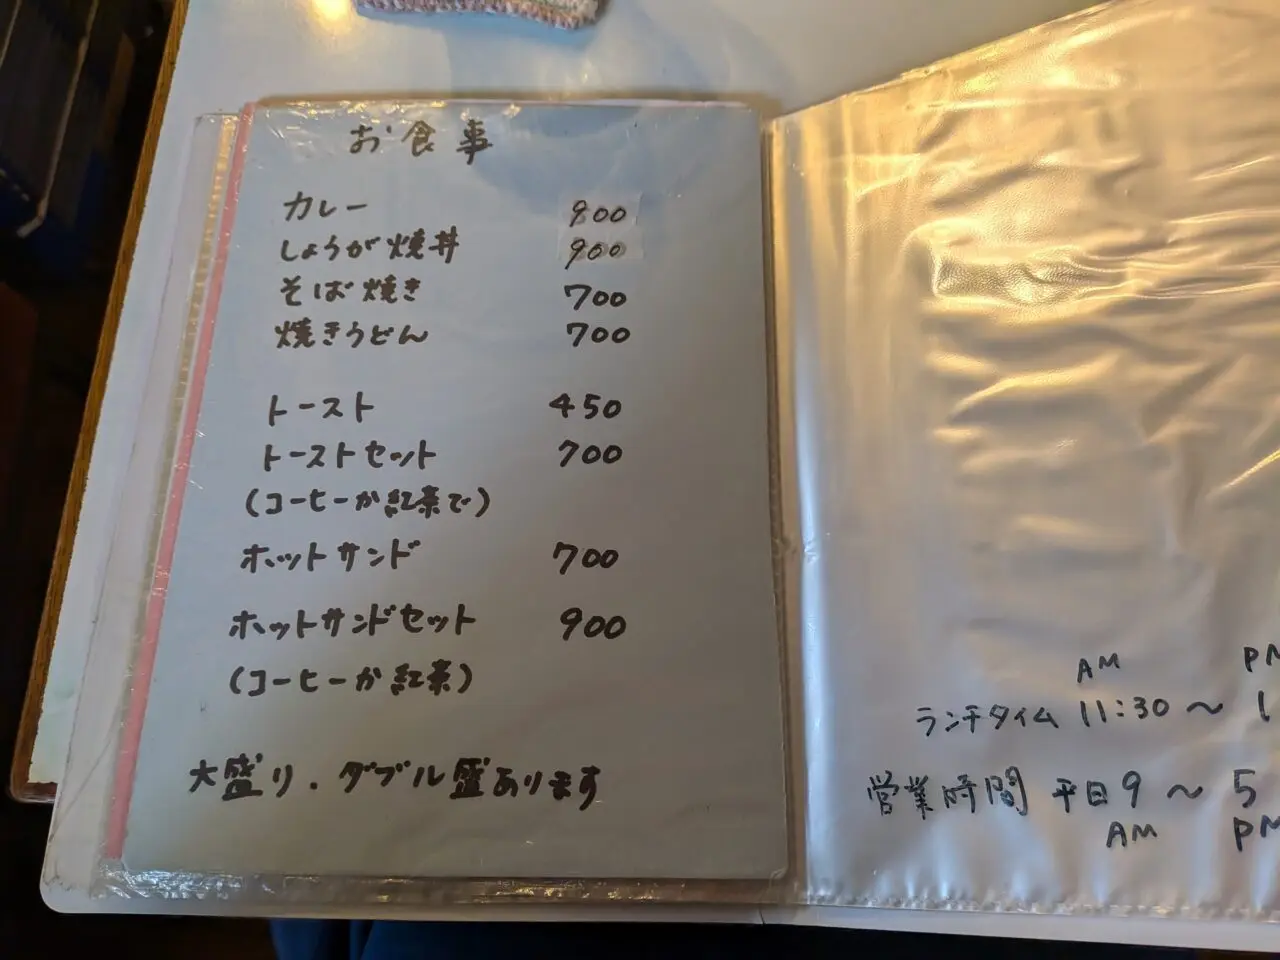 お食事
カレー 900
しょうが焼丼 900
そば焼き 700
焼きうどん 700
トースト 450
トーストセット 700
(コーヒーか紅茶で)
ホットサンド 700
ホットサンドセット 900
(コーヒーか紅茶)
大盛り.ダブル盛あります
AM PM
ランチタイム 11:30〜1
営業時間 平日9〜5
AM PM